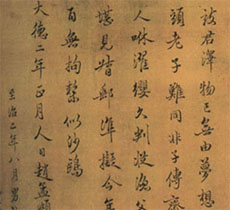 致君澤物已無由夢想
頭老子難同非子傳齊
人咻濯纓久判從漁父
堪見督郵準擬今年
百無拘繫似沙鷗
大德二年正月人日趙孟頫
至治二年八月男